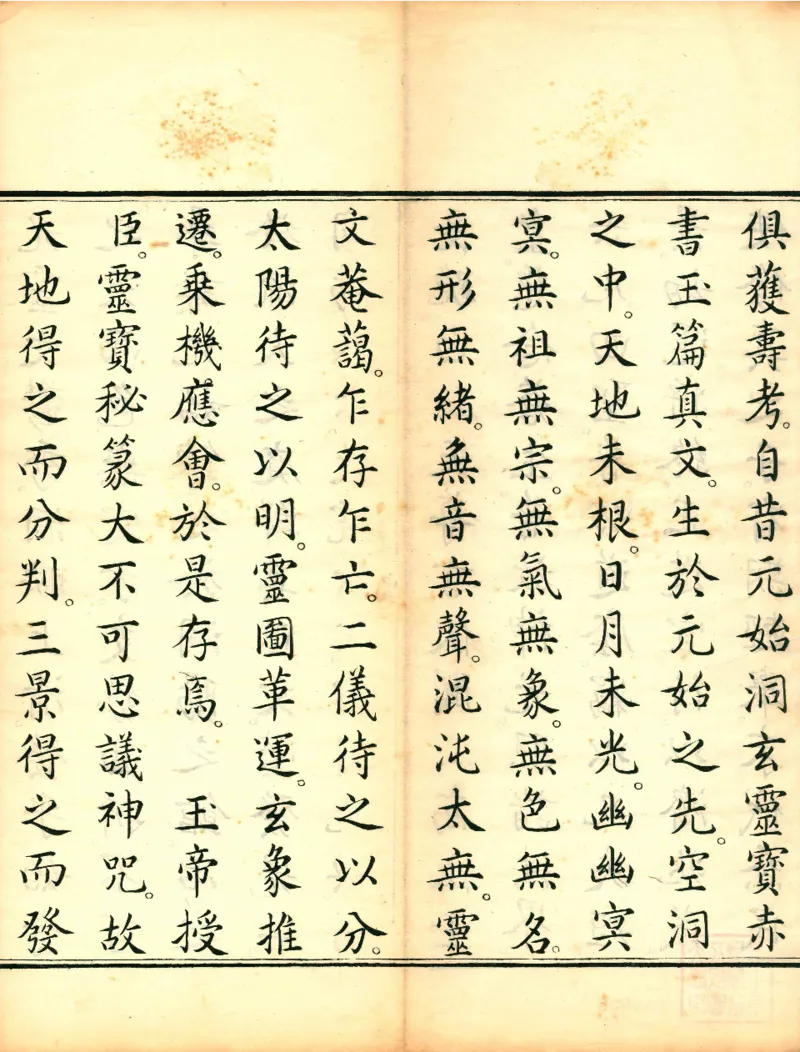 俱獲壽考。自昔元始洞玄靈寶赤
書玉篇真文。生於元始之先。空洞
之中。天地未根。日月未光。幽幽冥
冥。無祖無宗。無氣無象。無色無名。
無形無緒。無音無聲。混沌太無。靈
文菴藹。乍存乍亡。二儀待之以分。
太陽待之以明。靈圖革運。玄象推
遷。乘機應會。於是存焉。　玉帝授
臣。靈寶秘篆大不可思議神咒。故
天地得之而分判。三景得之而發